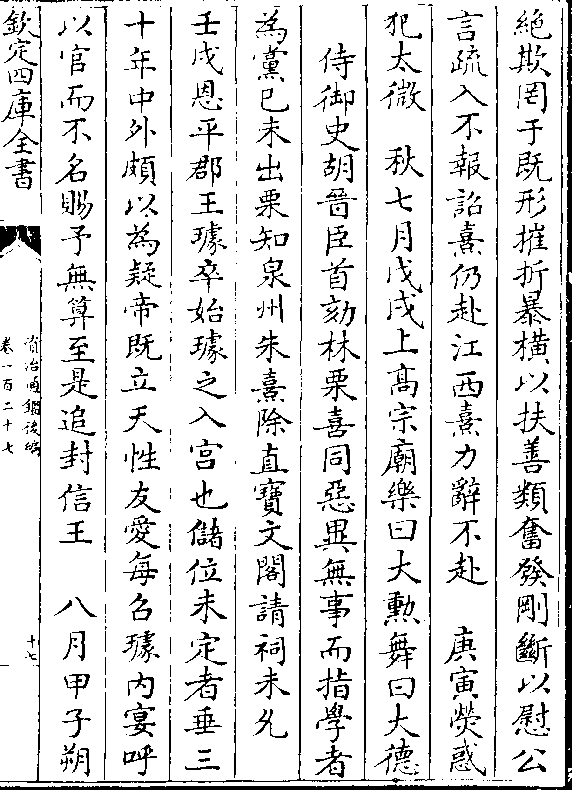 絶欺罔于既形摧折暴橫以扶善類奮發剛斷以慰公
言疏入不報詔熹仍赴江西熹力辭不赴　庚寅熒惑
犯太微　秋七月戊戌上髙宗廟樂曰大勲舞曰大德
侍御史胡晉臣首劾林栗喜同惡異無事而指學者
為黨已未出栗知泉州朱熹除直寶文閣請祠未允
壬戌恩平郡王璩卒始璩之入宫也儲位未定者垂三
十年中外頗以為疑帝既立天性友愛每召璩内宴呼
以官而不名賜予無算至是追封信王　八月甲子朔
欽定四庫全書
資治通鑑後編
卷一百二十七
十七